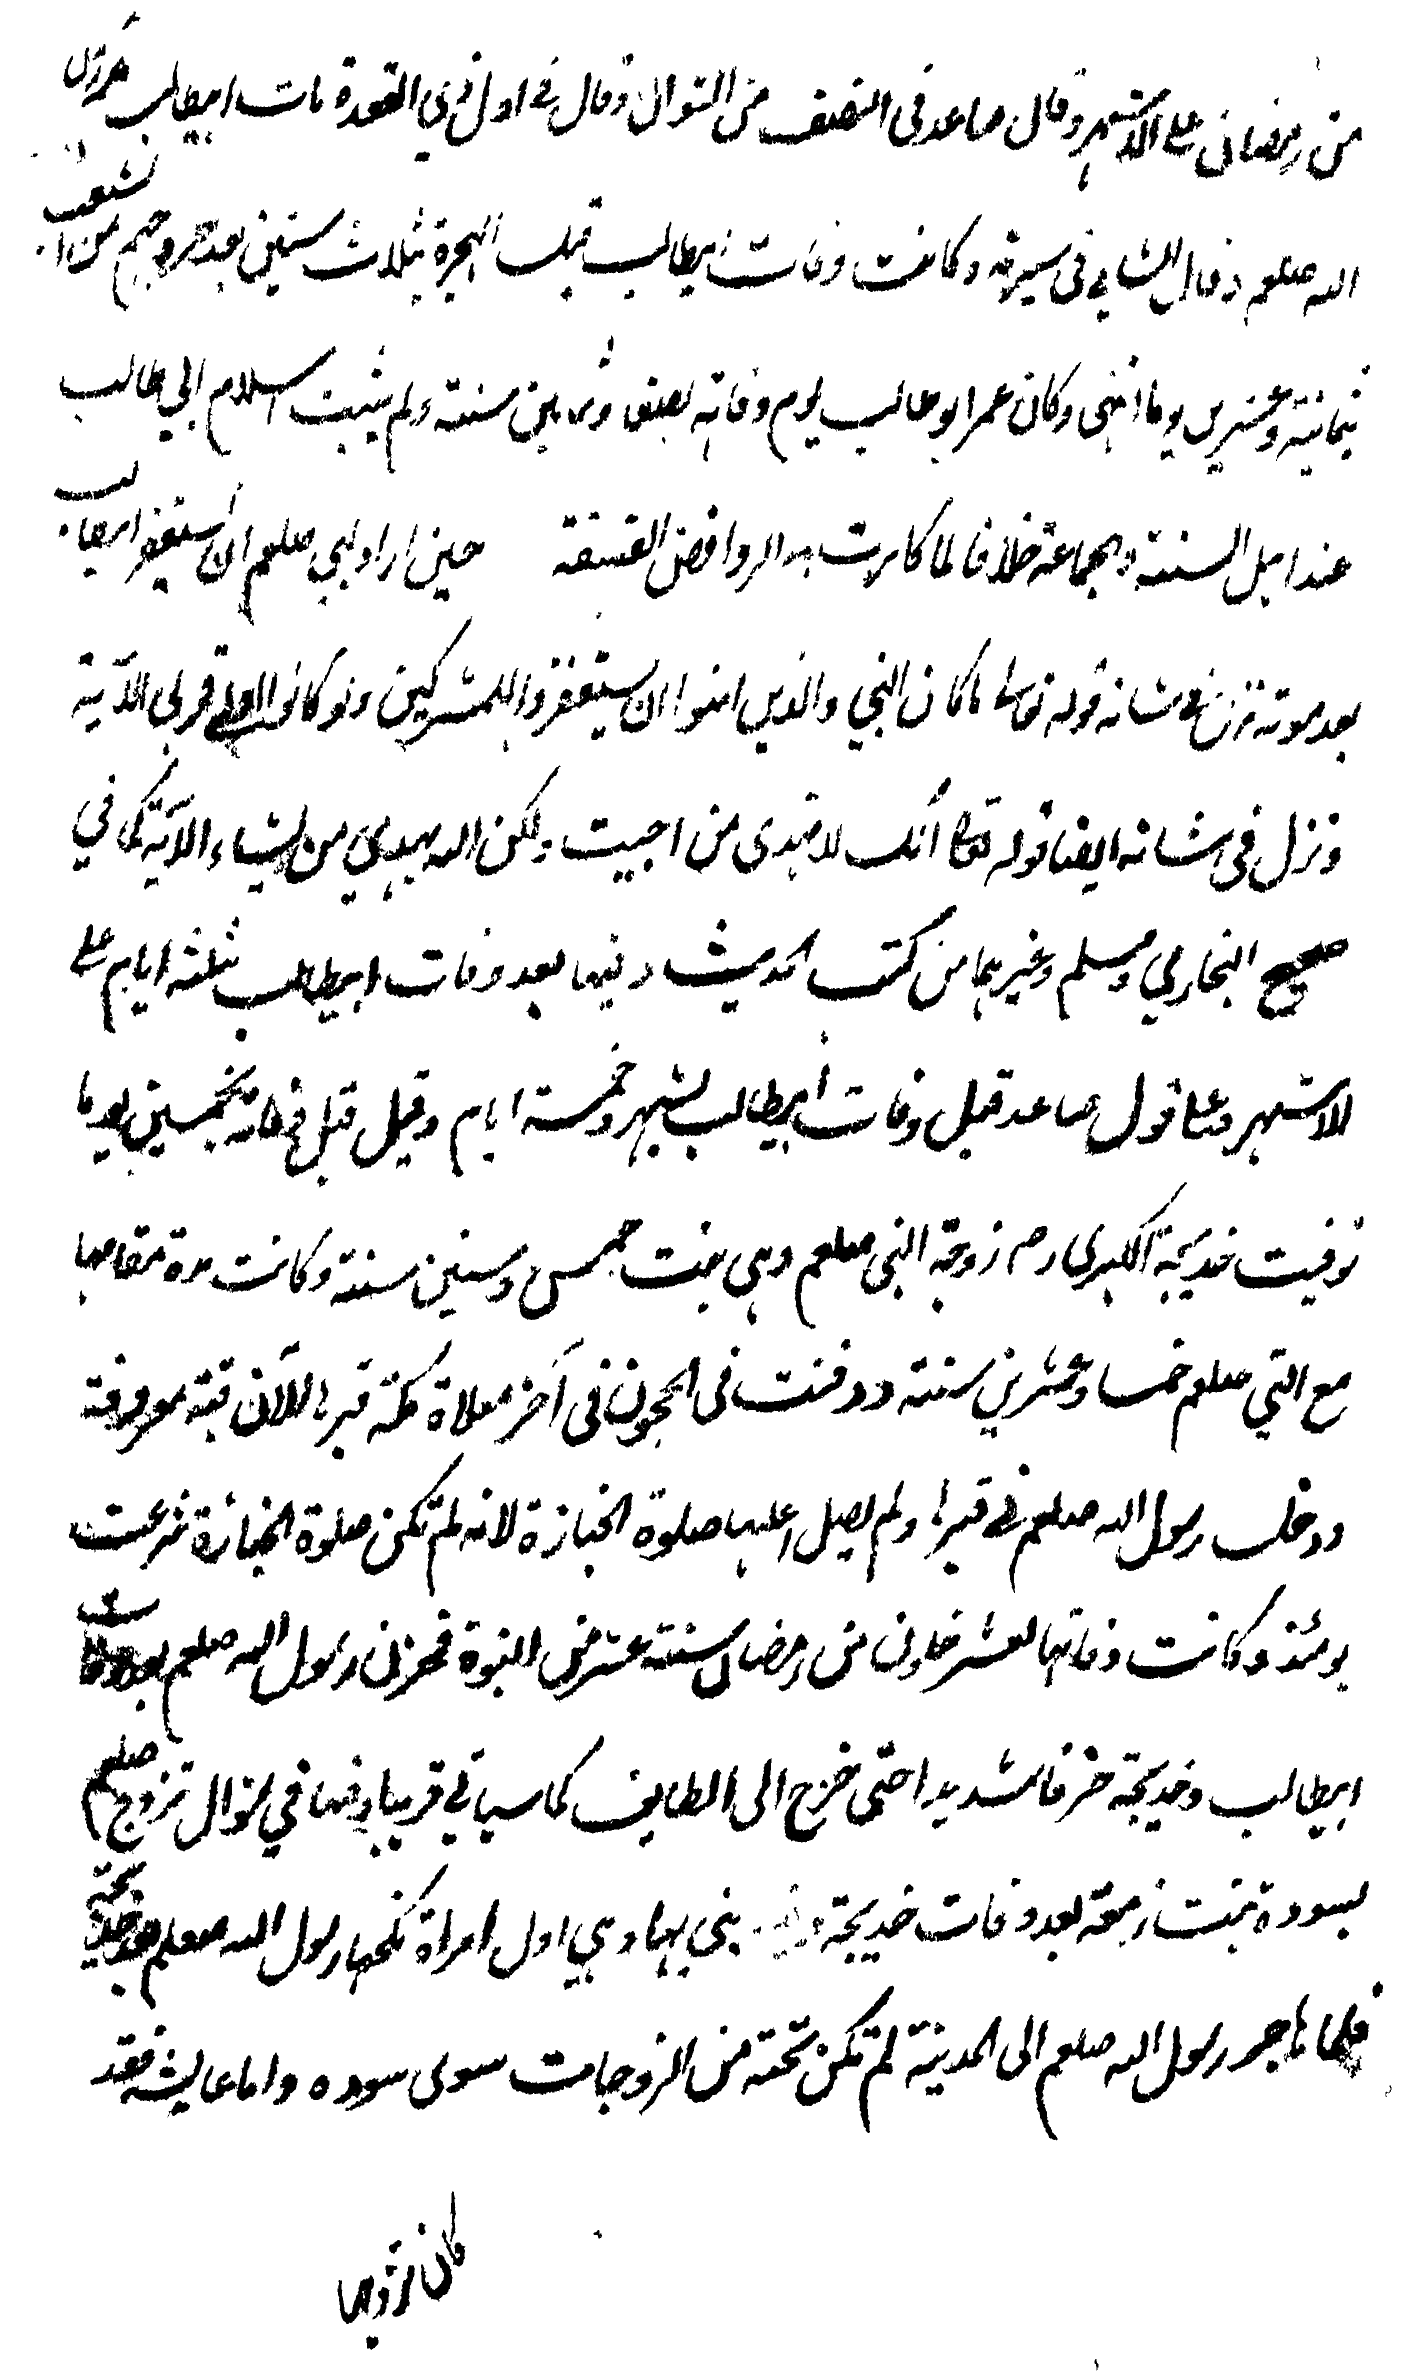 من رمضان على الاشهر وقال صاعد في النصف من الشوال وقال في اول ذي القعدة مات ابيطالب عم رسول
الله صلعم وقال الشامي في سيرته وكانت وفات ابيطالب قبل الهجرة بثلاث سنين بعد خروجهم من الشعب
بثمانية وعشرين يوما انتهى وكان عمر ابو طالب يوم وفاته بضعا وثمانين سنة ولم يثبت اسلام ابي طالب
عند اهل السنة والجماعة خلافا لما كابرت به الروافض الفسقة حين اراد النبي صلعم ان يستغفر ابيطالب
بعد موته نزل في شانه قوله تعالى ما كان النبي والذين امنوا ان يستغفروا للمشركين ولو كانوا اولي قربى الآية
ونزل في شانه ايضا قوله تعا انك لا تهدى من احببت ولكن الله يهدي من يشاء الآية كما في
صحيح البخاري ومسلم وغيرهما من كتب الحديث وفيها بعد وفات ابيطالب بثلثة ايام على
الاشهر وعلى قول صاعد قبل وفات ابيطالب بشهر وخمسة ايام وقيل قبل وفاته بخمسين يوما
توفيت خديجة الكبرى رض زوجة النبي صلعم وهي بنت خمس وستين سنة وكانت مدة مقامها
مع النبي صلعم خمسا وعشرين سنة ودفنت في الحجون في آخر معلاة مكة قبرها الآن قبة معروفة
ودخل رسول الله صلعم في قبرها ولم يصل عليها صلوة الجنازة لانه لم تكن صلوة الجنازة شرعت
يومئذ وكانت وفاتها لعشر خلون من رمضان سنة عشر من النبوة فحزن رسول الله صلعم بعد وفات
ابيطالب وخديجة حزنا شديدا حتى خرج الى الطايف كما سياتي قريبا وفيها في شوال تزوج صلعم
بسودة بنت زمعة بعد وفات خديجة وفيه بنى بها وهي اول امراة نكحها رسول الله صلعم بعد خديجة
فلما هاجر رسول الله صلعم الى المدينة لم تكن تحته من الزوجات سوى سوده واما عايشه فقد
كان تزوجها